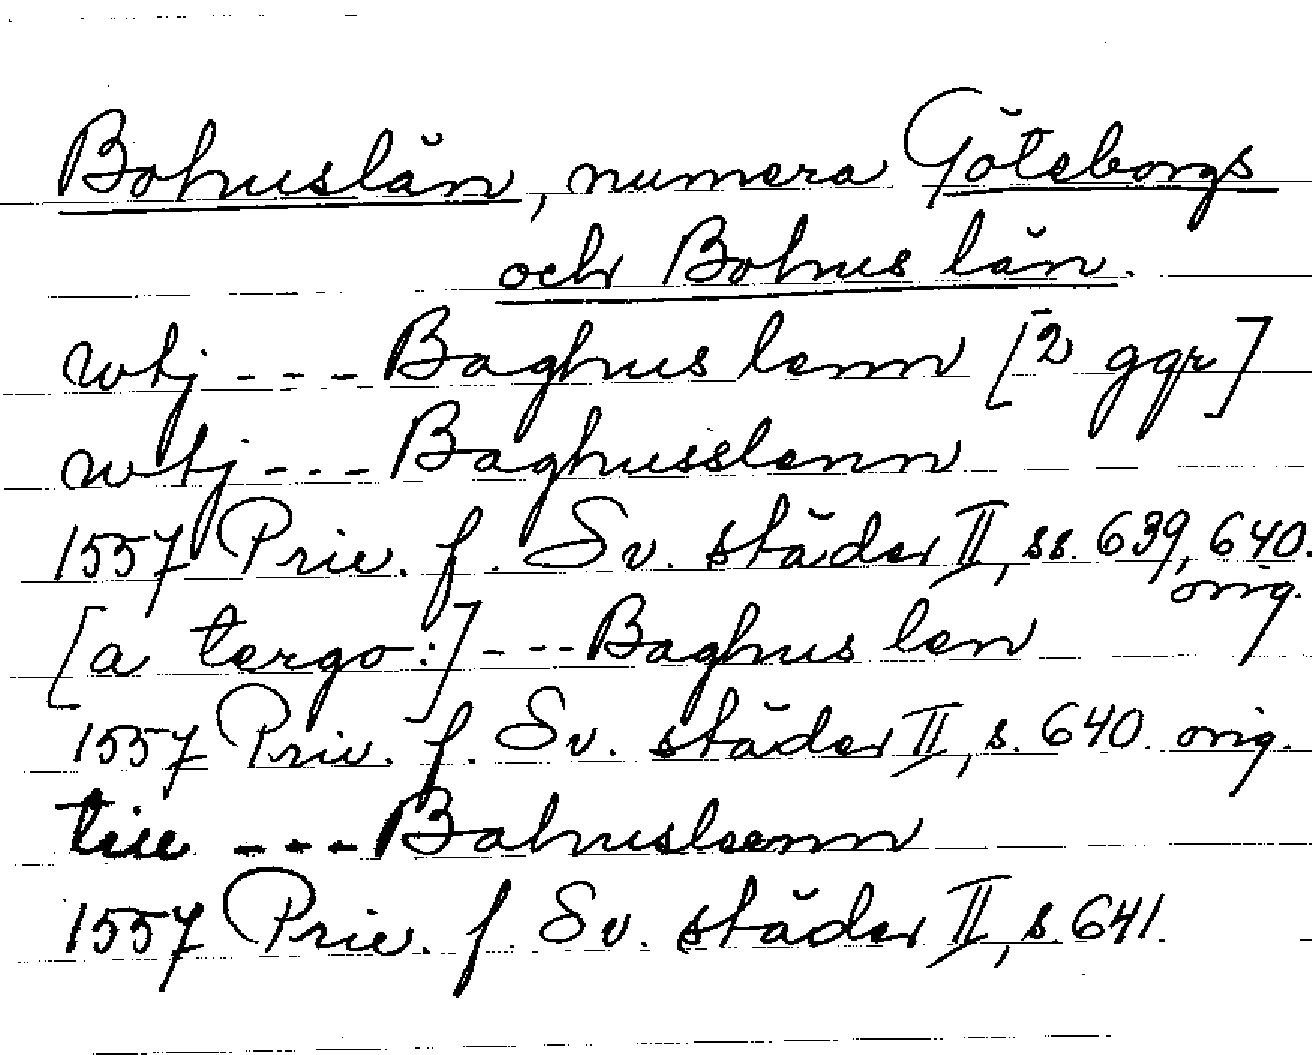 Bohuslän, numera Göteborgs
och Bohus län.
wtj --- Baghus lenn [2 ggr]
wtj --- Baghusslenn
1557 Priv. f. Sv. städer II, ss. 639, 640.
orig.
[a tergo:] --- Baghus len
1557 Priv. f. Sv. städer II, s. 640. orig.
tiil --- Bahuslenn
1557 Priv. f. Sv. städer II, s. 641.